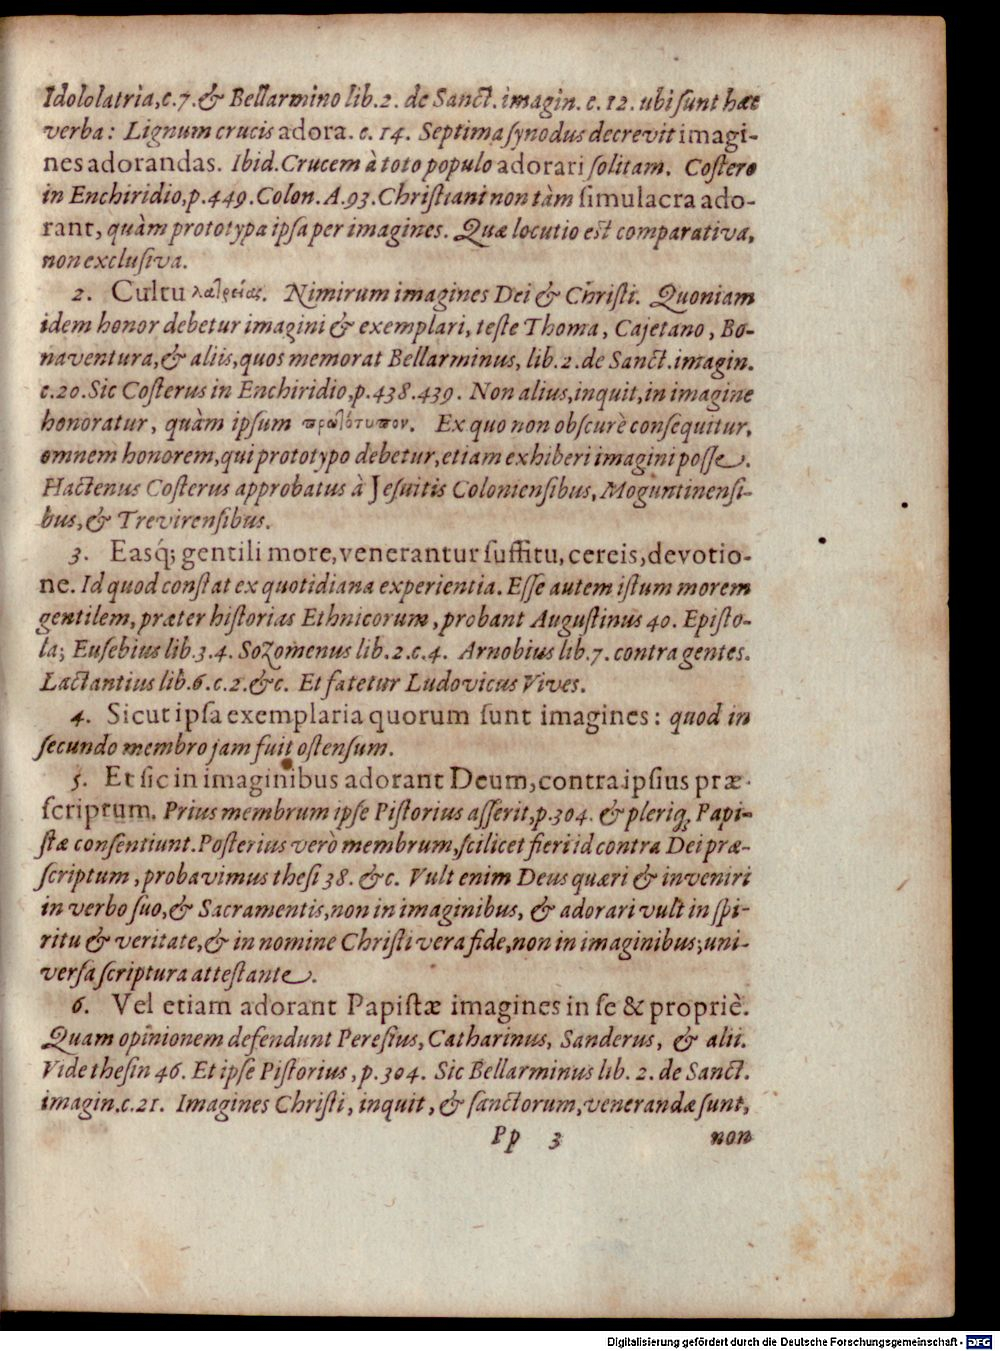 Idololatria, c. 7. & Bellarmino lib. 2. de Sanct. imagin. c. 12. ubi sunt hæc
verba: Lignum crucis adora. c. 14. Septima synodus decrevit imagi-
nes adorandas. Ibid. Crucem à toto populo adorari solitam. Costero
in Enchiridio, p. 449. Colon. A. 93. Christiani non tàm simulacra ado-
rant, quàm prototypa ipsa per imagines. Quæ locutio est comparativa,
non exclusiva.
2. Cultu λατρείας. Nimirum imagines Dei & Christi. Quoniam
idem honor debetur imagini & exemplari, teste Thoma, Cajetano, Bo-
naventura, & aliis, quos memorat Bellarminus, lib. 2. de Sanct. imagin.
c. 20. Sic Costerus in Enchiridio, p. 438. 439. Non alius, inquit, in imagine
honoratur, quàm ipsum πρωτότυπον. Ex quo non obscurè consequitur,
omnem honorem, qui prototypo debetur, etiam exhiberi imagini posse.
Hactenus Costerus approbatus à Jesuitis Coloniensibus, Moguntinensi-
bus, & Trevirensibus.
3. Easq́; gentili more, venerantur suffitu, cereis, devotio-
ne. Id quod constat ex quotidiana experientia. Esse autem istum morem
gentilem, præter historias Ethnicorum, probant Augustinus 40. Episto-
la; Eusebius lib. 3. 4. Sozomenus lib. 2. c. 4. Arnobius lib. 7. contra gentes.
Lactantius lib. 6. c. 2. &c. Et fatetur Ludovicus Vives.
4. Sicut ipsa exemplaria quorum sunt imagines: quod in
secundo membro jam fuit ostensum.
5. Et sic in imaginibus adorant Deum, contra ipsius præ-
scriptum. Prius membrum ipse Pistorius asserit, p. 304. & pleriq; Papi-
stæ consentiunt. Posterius verò membrum, scilicet fieri id contra Dei præ-
scriptum, probavimus thesi 38. &c. Vult enim Deus quæri & inveniri
in verbo suo, & Sacramentis, non in imaginibus, & adorari vult in spi-
ritu & veritate, & in nomine Christi vera fide, non in imaginibus; uni-
versa scriptura attestante.
6. Vel etiam adorant Papistæ imagines in se & propriè.
Quam opinionem defendunt Peresius, Catharinus, Sanderus, & alii.
Vide thesin 46. Et ipse Pistorius, p. 304. Sic Bellarminus lib. 2. de Sanct.
imagin. c. 21. Imagines Christi, inquit, & sanctorum, venerandæ sunt,
Pp 3 non
Digitalisierung gefördert durch die Deutsche Forschungsgemeinschaft - DFG